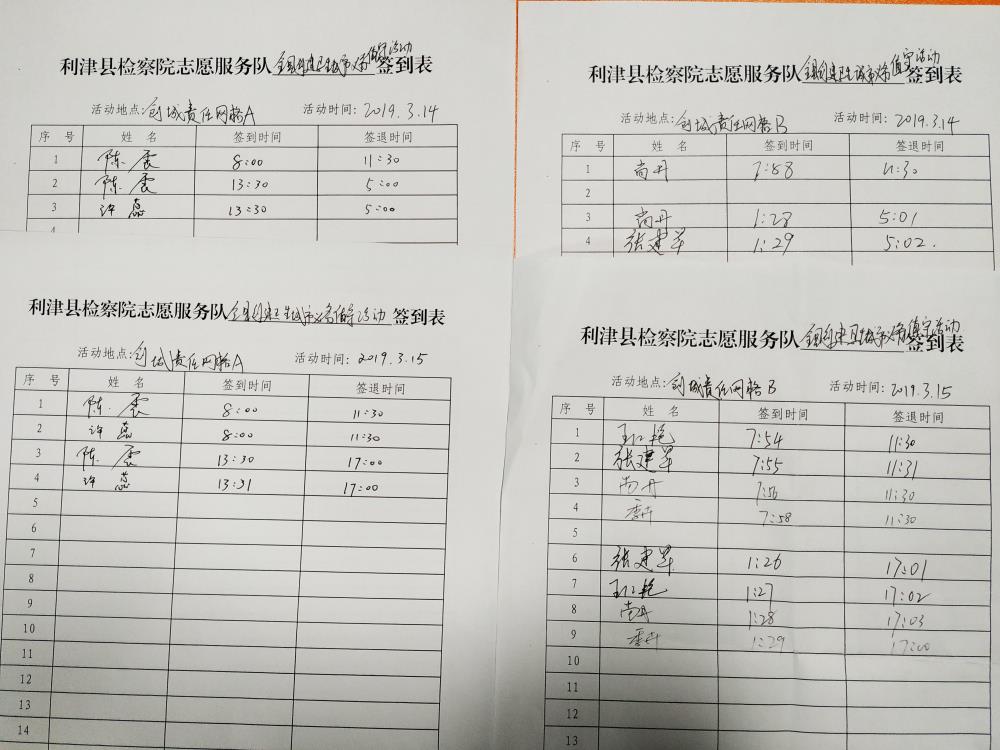 利津县检察院志愿服务队 签到表
活动地点:创城责任网格A 活动时间: 2019.3.14
序号 姓名 签到时间 签退时间
1 陈震 8:00 11:30
2 陈震 13:30 5:00
3 许蕊 13:30 5:00
4
利津县检察院志愿服务队 签到表
活动地点:创城责任网格B 活动时间: 2019.3.14
序号 姓名 签到时间 签退时间
1 尚丹 7:58 11:30
2
3 尚丹 1:28 5:01
4 张建军 1:29 5:02.
利津县检察院志愿服务队 签到表
活动地点:创城责任网格A 活动时间: 2019.3.15
序号 姓名 签到时间 签退时间
1 陈震 8:00 11:30
2 许蕊 8:00 11:30
3 陈震 13:30 17:00
4 许蕊 13:31 17:00
5
6
7
8
9
10
11
12
13
14
利津县检察院志愿服务队 签到表
活动地点:创城责任网格B 活动时间: 2019.3.15
序号 姓名 签到时间 签退时间
1 7:54 11:30
2 张建军 7:55 11:31
3 尚丹 7:56 11:30
4 7:58 11:30
5
6 张建军 1:26 17:01
7 1:27 17:02
8 尚丹 1:28 17:03
9 1:29 17:00
10
11
12
13